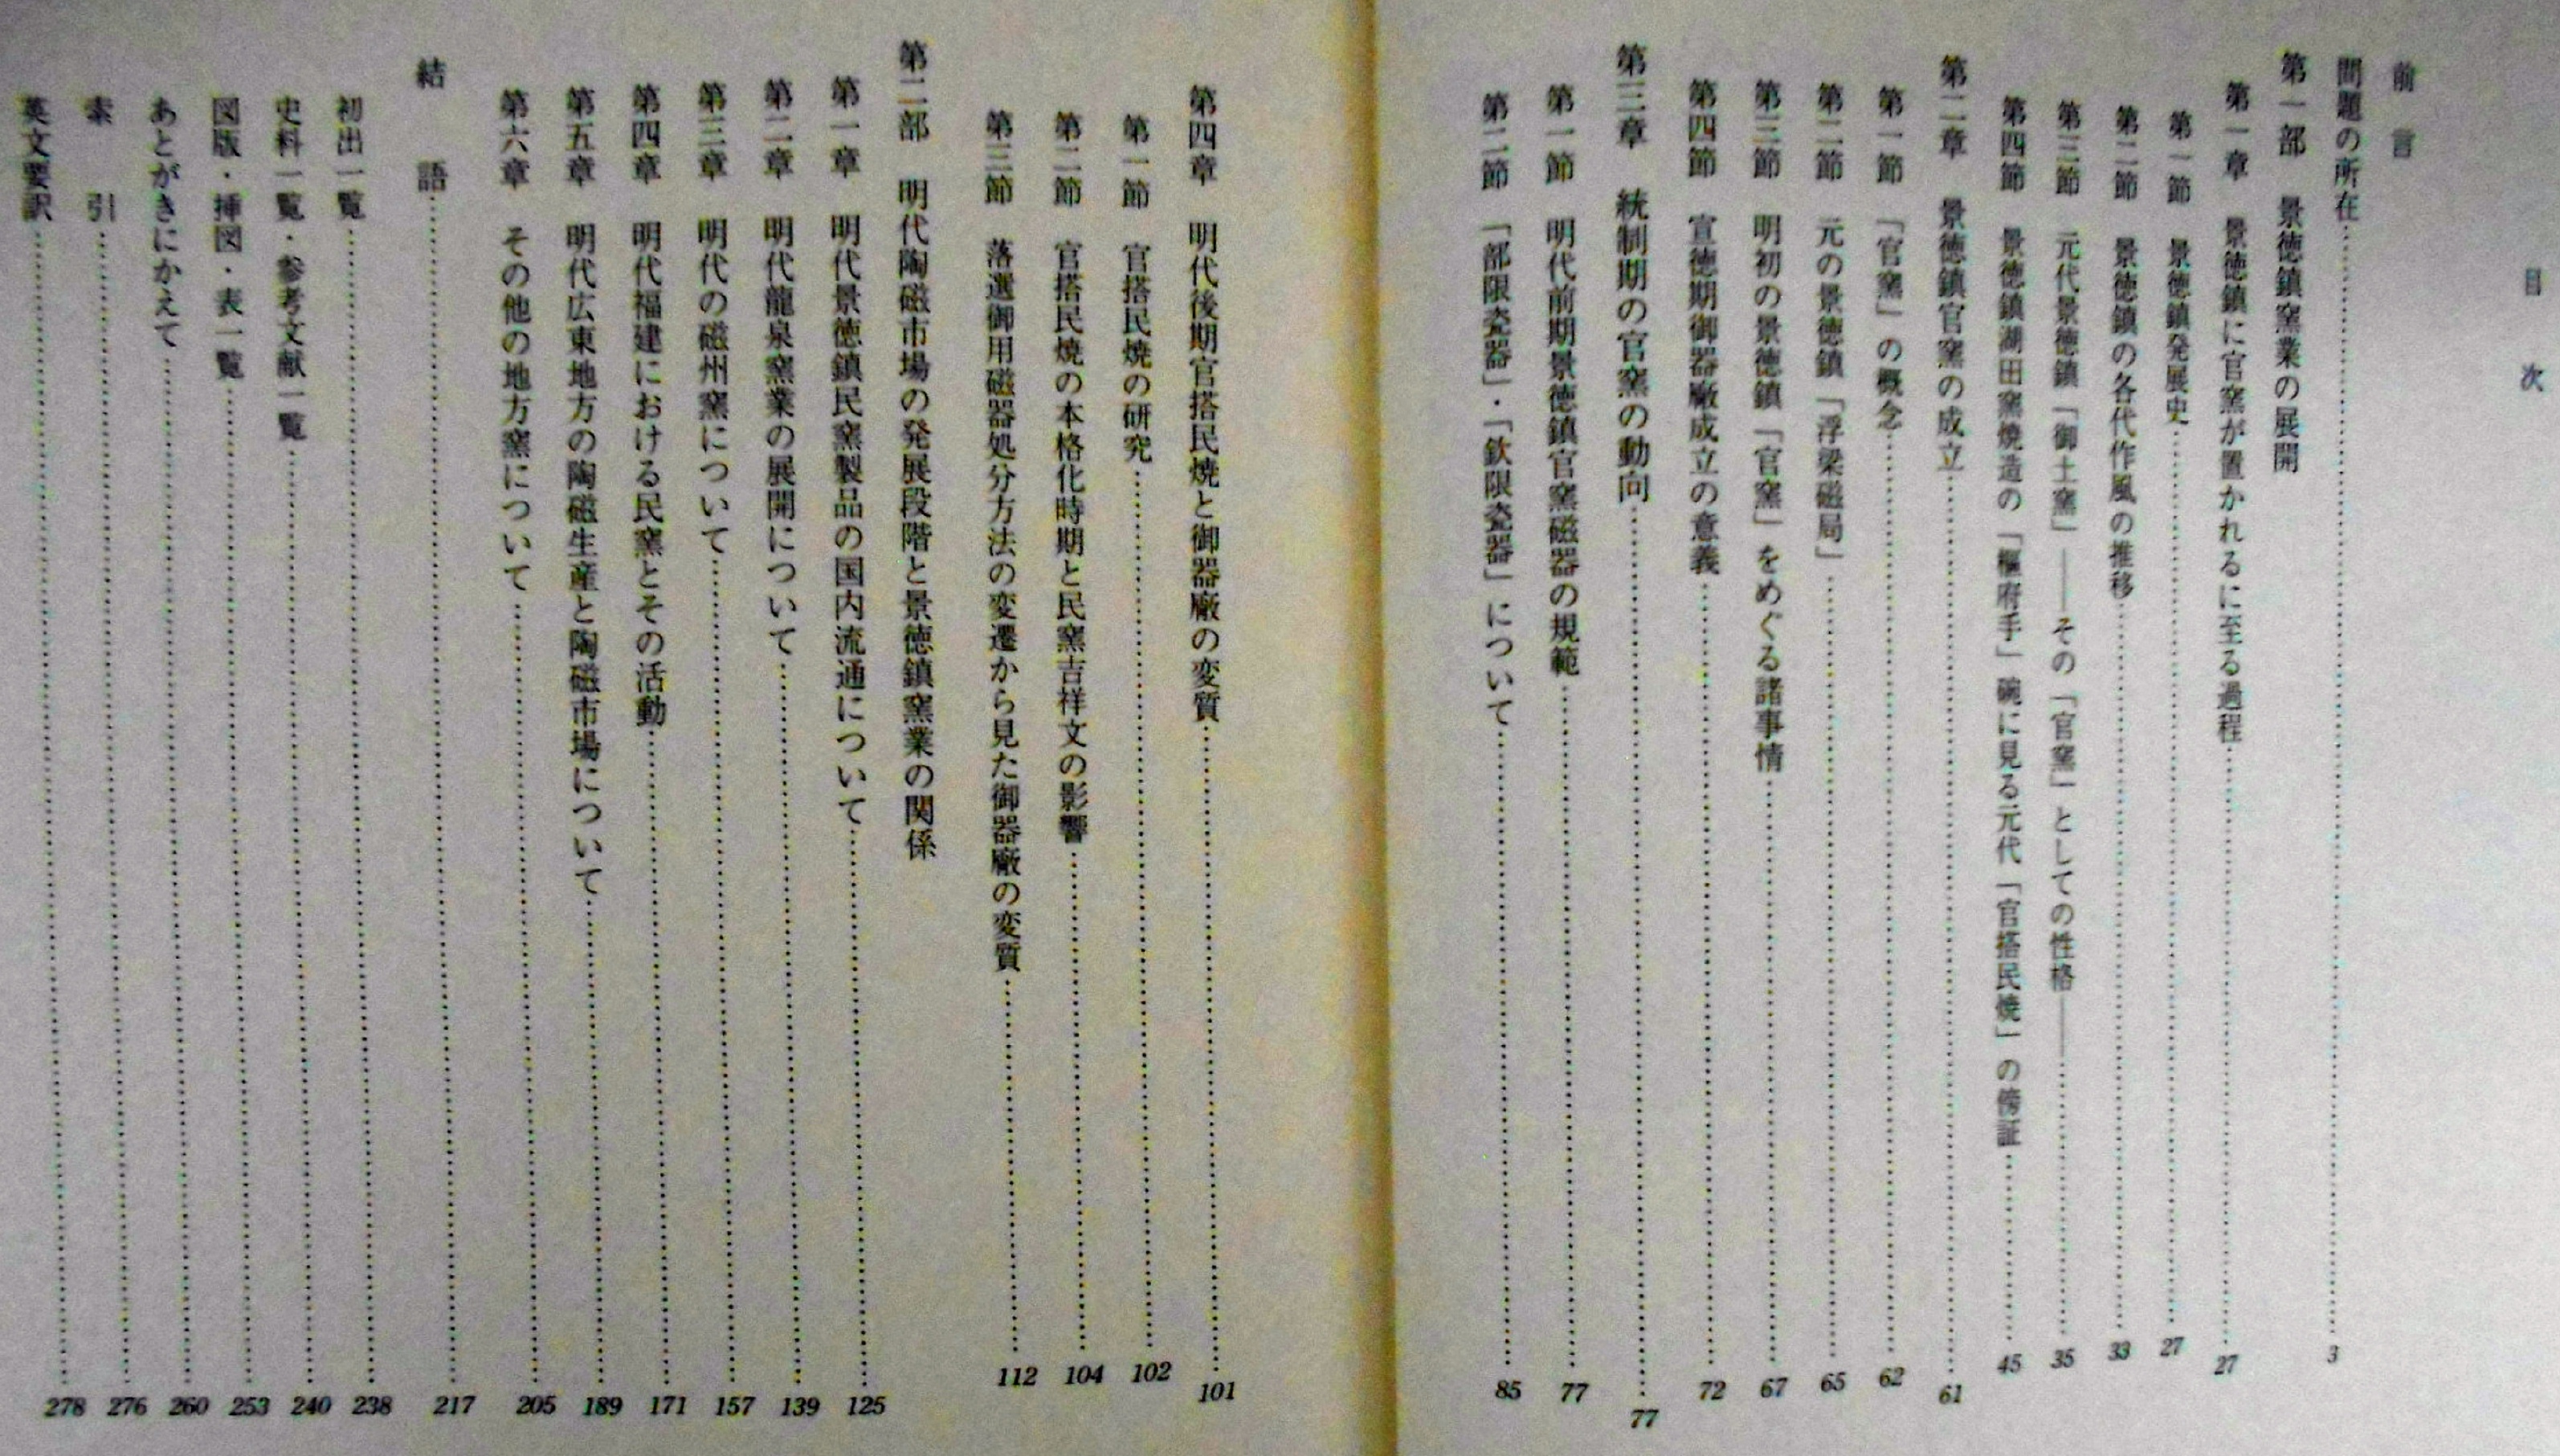 目次
前言
問題の所在 3
第一部 景徳鎮窯業の展開
第一章 景徳鎮に官窯が置かれるに至る過程 27
第一節 景徳鎮発展史 27
第二節 景徳鎮の各代作風の推移 33
第三節 元代景徳鎮「御土窯」――その「官窯」としての性格―― 35
第四節 景徳鎮湖田窯焼造の「枢府手」碗に見る元代「官搭民焼」の傍証 45
第二章 景徳鎮官窯の成立 61
第一節 「官窯」の概念 62
第二節 元の景徳鎮「浮梁磁局」 65
第三節 明初の景徳鎮「官窯」をめぐる諸事情 67
第四節 宣徳期御器廠成立の意義 72
第三章 統制期の官窯の動向 77
第一節 明代前期景徳鎮官窯磁器の規範 77
第二節 「部限瓷器」・「欽限瓷器」について 85
第四章 明代後期官搭民焼と御器廠の変質 101
第一節 官搭民焼の研究 102
第二節 官搭民焼の本格化時期と民窯吉祥文の影響 104
第三節 落選御用磁器処分方法の変遷から見た御器廠の変質 112
第二部 明代陶磁市場の発展段階と景徳鎮窯業の関係
第一章 明代景徳鎮民窯製品の国内流通について 125
第二章 明代龍泉窯業の展開について 139
第三章 明代の磁州窯について 157
第四章 明代福建における民窯とその活動 171
第五章 明代広東地方の陶磁生産と陶磁市場について 189
第六章 その他の地方窯について 205
結語 217
初出一覧 238
史料一覧・参考文献一覧 240
図版・挿図・表一覧 253
あとがきにかえて 260
索引 276
英文要訳 278